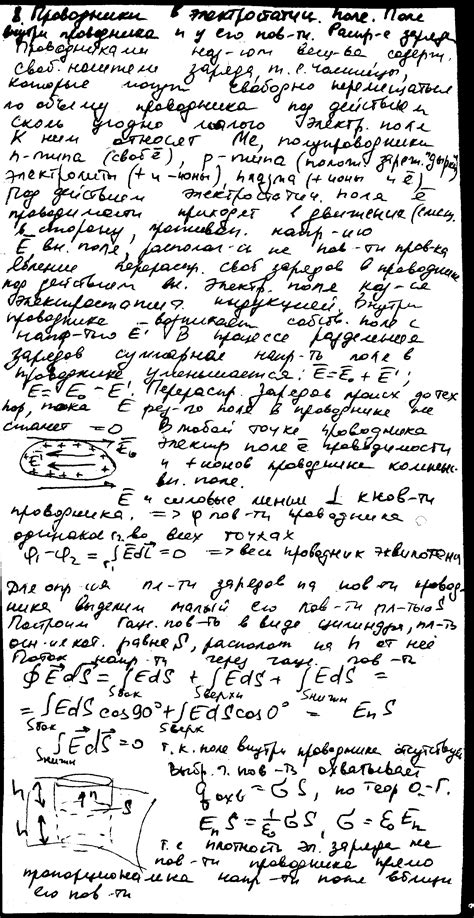 8. Проводники в электростатич. поле. Поле
внутри проводника и у его пов-ти. Распр-е заряда
Проводниками наз-ют вещ-ва содерж.
своб. носители заряда, т.е. частицы,
которые могут свободно перемещаться
по объему проводника под действием
сколь угодно малого электр. поля
К ним относят Ме, полупроводники
n-типа (своб ē), p-типа (полож. заряж. "дырки")
электролиты (+ и -ионы), плазма (+ионы и ē)
Под действием электростатич. поля ē
проводимости приходят в движение (смещ.
в сторону, противоп. напр-ию
E вн. поля, располаг-сь на пов-ти пров-ка
явление перераспр. своб зарядов в проводнике
под действием вн. электр. поля наз-ся
электростатич. индукцией. Внутри
проводника возникает собств. поле с
напр-тью E' В процессе разделения
зарядов суммарная напр-ть поле в
проводнике уменьшается: E = E₀ + E';
E = E₀ - E'. Перераспр. зарядов происх до тех
пор, пока E рез-го поля в проводнике не
станет = 0 В любой точке проводника
E₀ электр поле ē проводимости
E' и + ионов проводника компенс.
вн. поле.
E и силовые линии ⊥ к пов-ти
проводника. => φ пов-ти проводника
одинаков во всех точках
φ₁ - φ₂ = ∫Edl = 0 => весь проводник эквипотенц
Для опр-ия пл-ти зарядов на пов-ти провод-
ника выделим малый его пов-ти пл-тью S
Построим Гаус. пов-ть в виде цилиндра, пл-дь
осн-ия кот. равна S, располож на h от неё
Поток напр-ти через гаус. пов-ть
∮EdS = ∫EdS + ∫EdS + ∫EdS =
Sбок Sверхн Sнижн
= ∫EdS cos90° + ∫EdS cos0° = EₙS
Sбок Sверх
∫EdS = 0 т.к. поле внутри проводника отсутствует
Sнижн
Выбр. г. пов-ть охватывает
qохв = σS, по теор О.-Г.
EₙS = 1/ε₀ σS, σ = ε₀Eₙ
h n S
h
т.е плотность эл. заряда на
пов-ти проводника прямо
пропорциональна напр-ти поля вблизи
его пов-ти